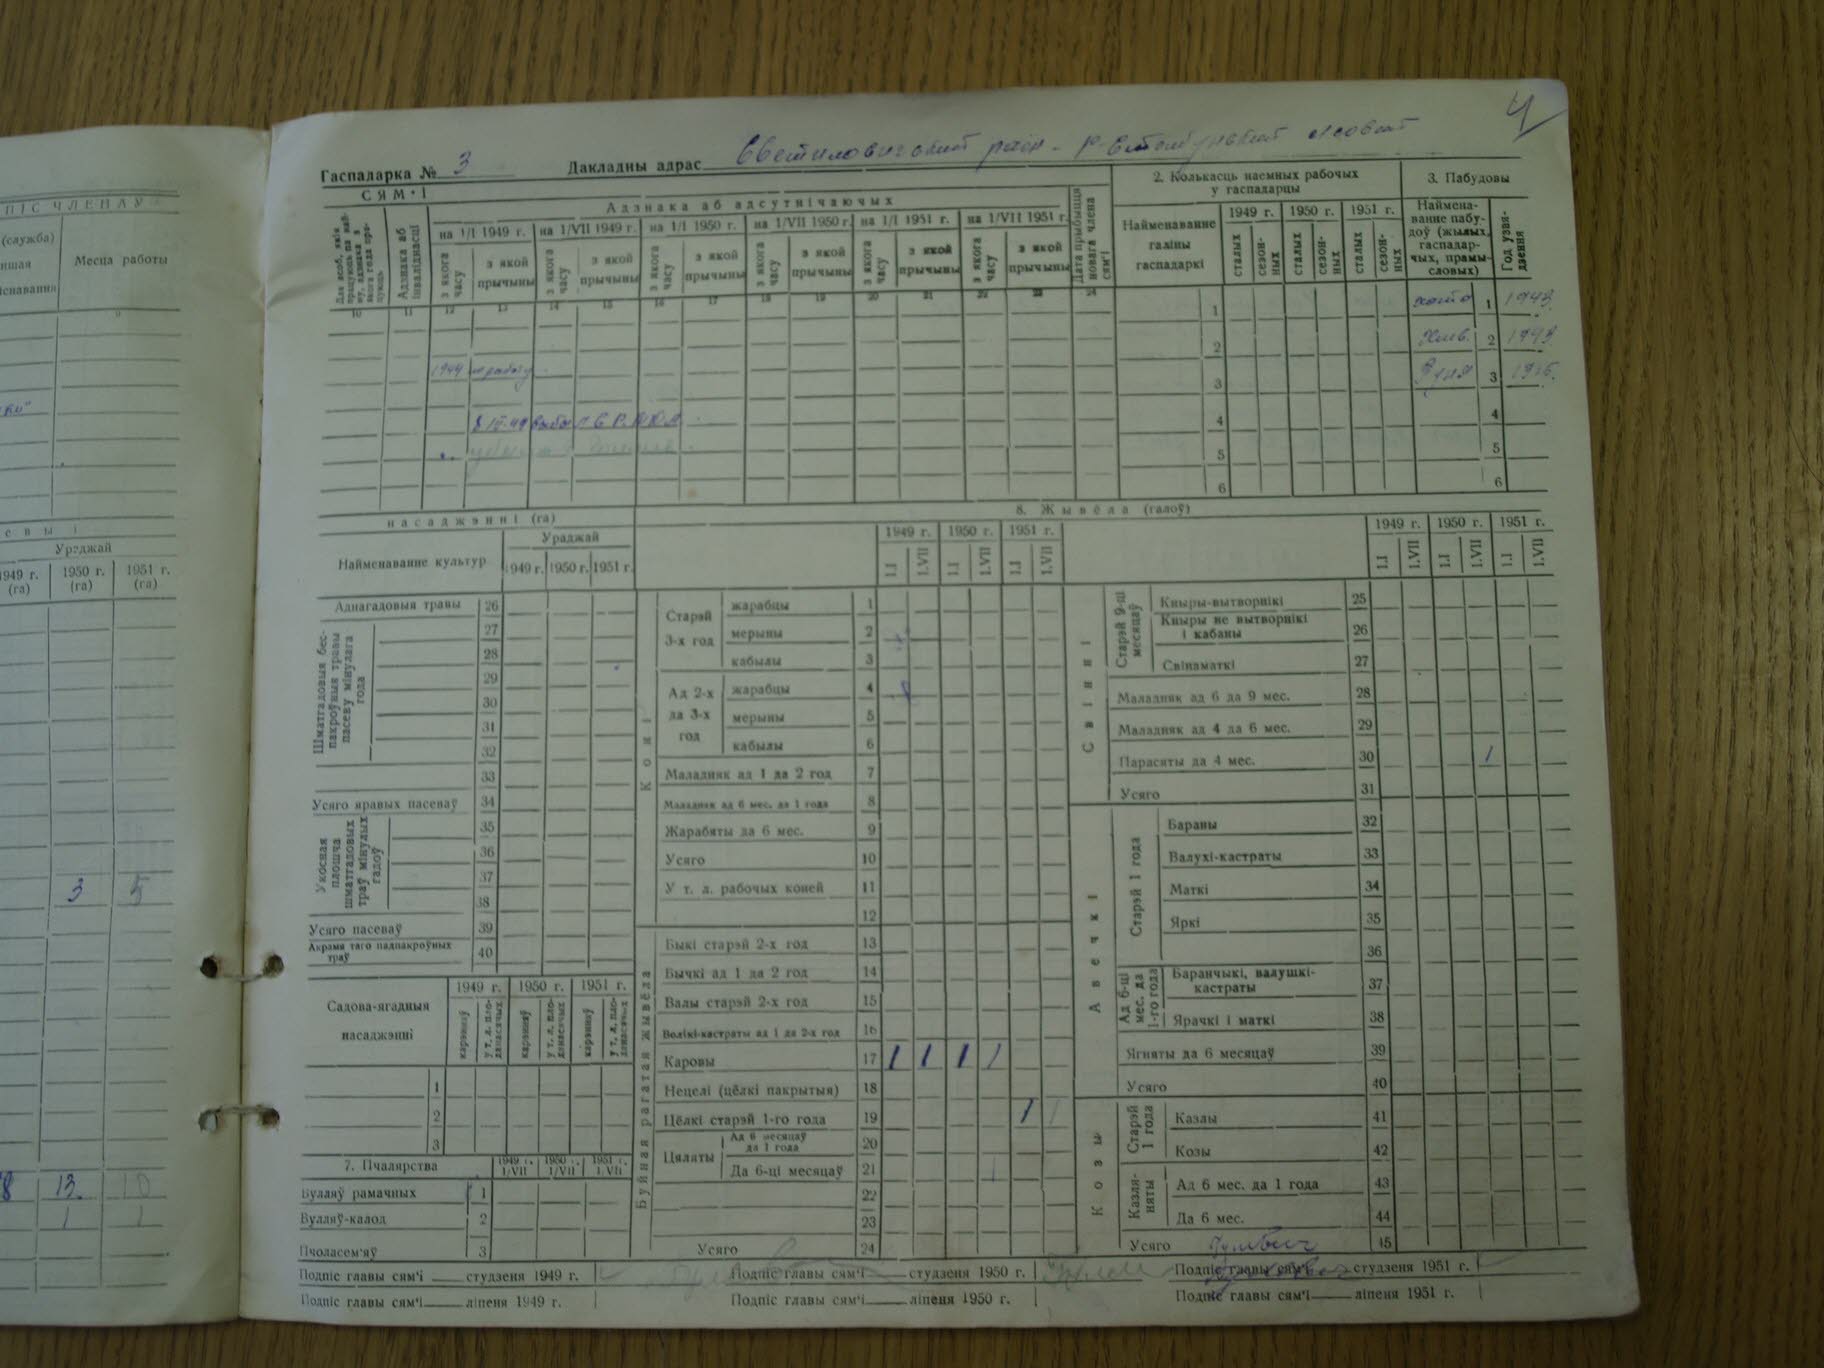 ПІС ЧЛЕНАЎ
(служба)
Месца работы
9
Ураджай
1949 г. (га) 1950 г. (га) 1951 г. (га)
3 5
8 13. 10
1 1
4
Гаспадарка № 3 Дакладны адрас Светиловичский
СЯМ'І
Адзнака аб адсутнічаючых
2. Колькасць наемных рабочых у гаспадарцы
3. Пабудовы
Адзнака аб інваліднасці
на 1/I 1949 г. на 1/VII 1949 г. на 1/I 1950 г. на 1/VII 1950 г. на 1/I 1951 г. на 1/VII 1951 г.
з якога часу з якой прычыны з якога часу з якой прычыны з якога часу з якой прычыны з якога часу з якой прычыны з якога часу з якой прычыны з якога часу з якой прычыны
Дата прыбыцця новага члена сям'і
Найменаванне галіны гаспадаркі
1949 г. 1950 г. 1951 г.
сталых сезонных сталых сезонных сталых сезонных
Найменаванне пабудоў (жылых, гаспадарчых, прамысловых)
Год узвядзення
10 11 12 13 14 15 16 17 18 19 20 21 22 23 24
1 хата 1 1943.
2 Хлев. 2 1943.
1944 3 3
4 4
5 5
6 6
насаджэнні (га)
Найменаванне культур
Ураджай
1949 г. 1950 г. 1951 г.
Аднагадовыя травы 26
Шматгадовыя беспакроўныя травы пасеву мінулага года
27
28
29
30
31
32
33
Усяго яравых пасеваў 34
Укосная плошча шматгадовых траў мінулых гадоў
35
36
37
38
Усяго пасеваў 39
Акрамя таго падпакроўных траў 40
Садова-ягадныя насаджэнні
1949 г. 1950 г. 1951 г.
карэнняў у т. л. пладанасячых карэнняў у т. л. пладанасячых карэнняў у т. л. пладанасячых
1
2
3
7. Пчалярства
1949 г. 1/VII 1950 г. 1/VII 1951 г. 1/VII
Вулляў рамачных 1
Вулляў-калод 2
Пчоласем'яў 3
8. Жывёла (галоў)
1949 г. 1950 г. 1951 г.
1.I 1.VII 1.I 1.VII 1.I 1.VII
Коні
Старэй 3-х год
жарабцы 1
мерыны 2
кабылы 3
Ад 2-х да 3-х год
жарабцы 4
мерыны 5
кабылы 6
Маладняк ад 1 да 2 год 7
Маладняк ад 6 мес. да 1 года 8
Жарабяты да 6 мес. 9
Усяго 10
У т. л. рабочых коней 11
12
Буйная рагатая жывёла
Быкі старэй 2-х год 13
Бычкі ад 1 да 2 год 14
Валы старэй 2-х год 15
Волікі-кастраты ад 1 да 2-х год 16
Каровы 17 1 1 1 1
Нецелі (цёлкі пакрытыя) 18
Цёлкі старэй 1-го года 19 1 1
Цяляты
Ад 6 месяцаў да 1 года 20
Да 6-ці месяцаў 21 1
22
23
Усяго 24
1949 г. 1950 г. 1951 г.
1.I 1.VII 1.I 1.VII 1.I 1.VII
Свінні
Старэй 9-ці месяцаў
Кныры-вытворнікі 25
Кныры не вытворнікі і кабаны 26
Свінаматкі 27
Маладняк ад 6 да 9 мес. 28
Маладняк ад 4 да 6 мес. 29
Парасяты да 4 мес. 30 1
Усяго 31
Авечкі
Старэй 1 года
Бараны 32
Валухі-кастраты 33
Маткі 34
Яркі 35
36
Ад 6-ці мес. да 1-го года
Баранчыкі, валушкі-кастраты 37
Ярачкі і маткі 38
Ягняты да 6 месяцаў 39
Усяго 40
Козы
Старэй 1 года
Казлы 41
Козы 42
Казляняты
Ад 6 мес. да 1 года 43
Да 6 мес. 44
Усяго 45
Подпіс главы сям'і студзеня 1949 г. Подпіс главы сям'і студзеня 1950 г. Подпіс главы сям'і студзеня 1951 г.
Подпіс главы сям'і ліпеня 1949 г. Подпіс главы сям'і ліпеня 1950 г. Подпіс главы сям'і ліпеня 1951 г.